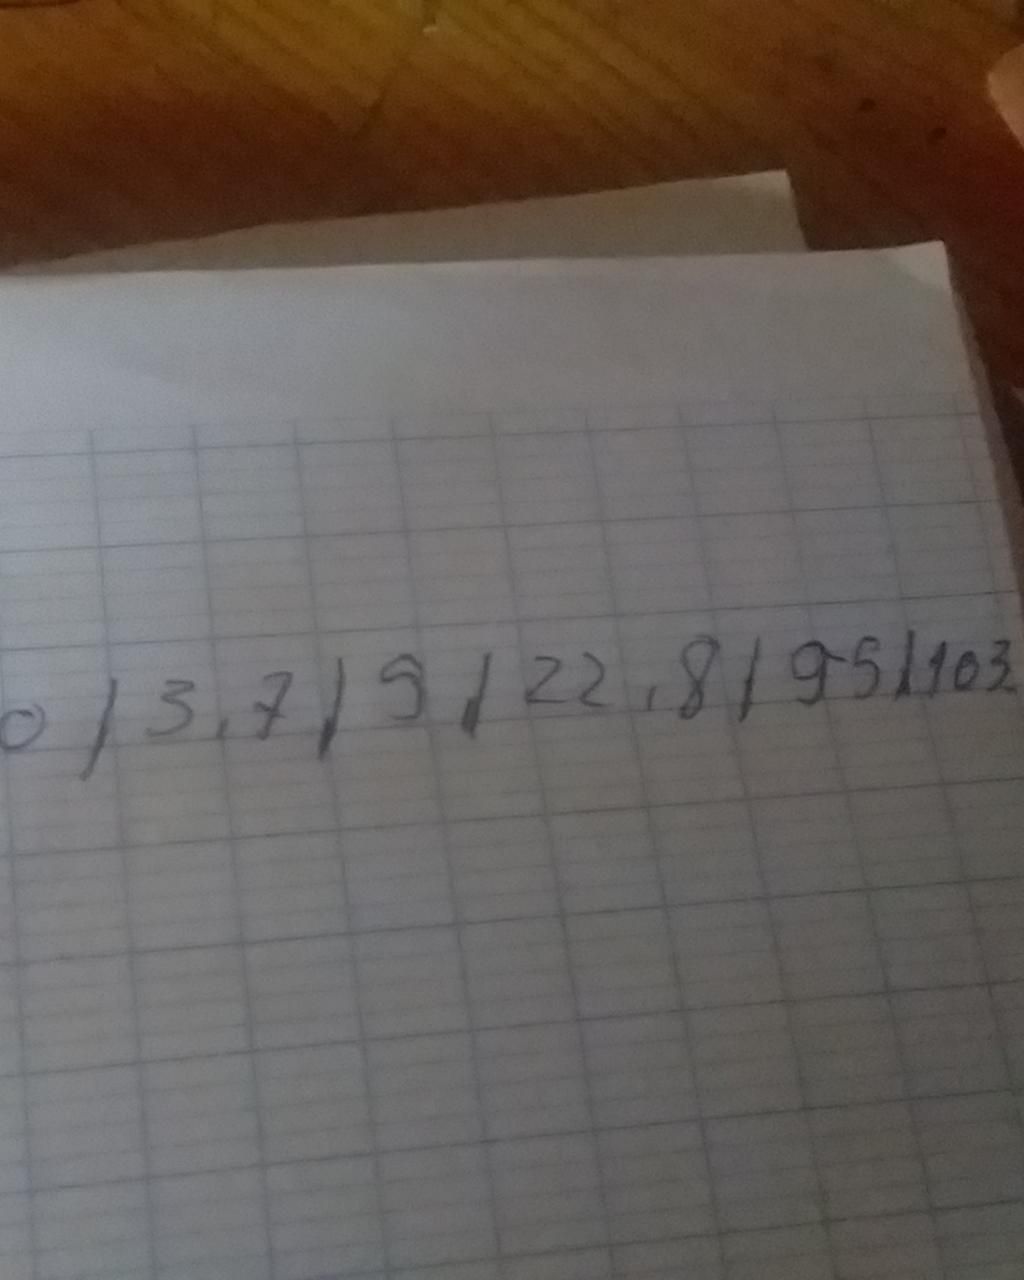 0 / 3,7 / 9 / 22,8 / 95 / 103